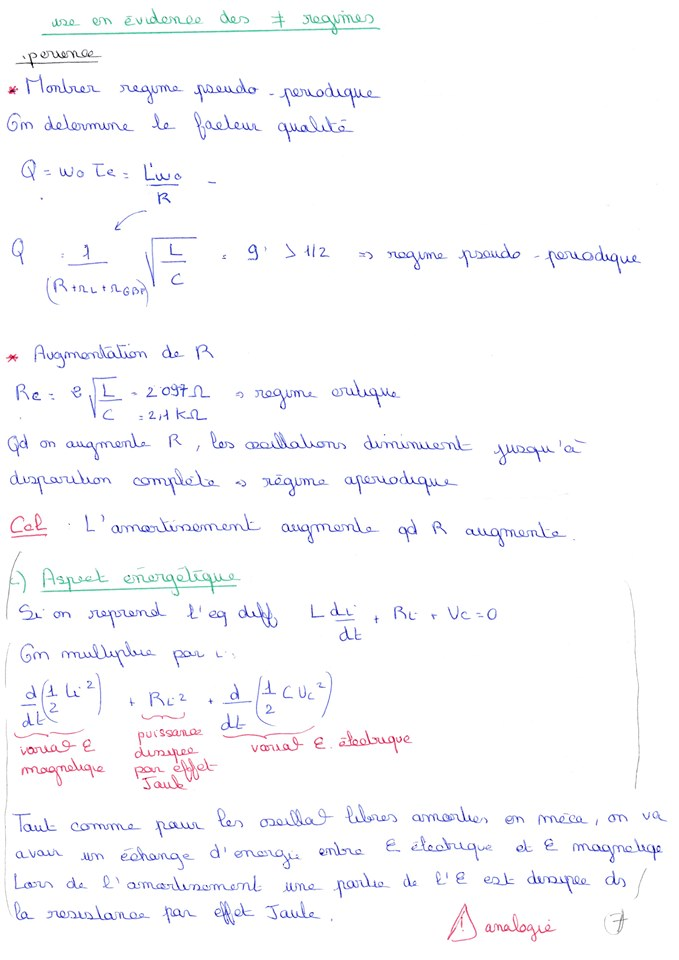 use en évidence des ≠ regimes
perience
* Montrer regime pseudo-periodique
On determine le facteur qualité
Q = ω0 τe = Lω0/R
Q = 1/(R+rL+rGBF) √(L/C) = 9 > 1/2 ⇒ regime pseudo-periodique
* Augmentation de R
Rc = 2√(L/C) = 2097Ω ⇒ regime critique
= 2,1 kΩ
Qd on augmente R, les oscillations diminuent jusqu'à
disparition complète ⇒ régime aperiodique
Ccl . L'amortissement augmente qd R augmente.
) Aspect énergétique
Si on reprend l'eq diff L di/dt + Ri + Uc = 0
On multiplie par i :
d/dt (1/2 Li²) + Ri² + d/dt (1/2 C Uc²)
variat E magnetique
puissance dissipee par effet Joule
variat E. électrique
Tout comme pour les oscillat libres amorties en méca, on va
avoir un échange d'energie entre E électrique et E magnetique
Lors de l'amortissement une partie de l'E est dissipee ds
la resistance par effet Joule.
! analogie
7